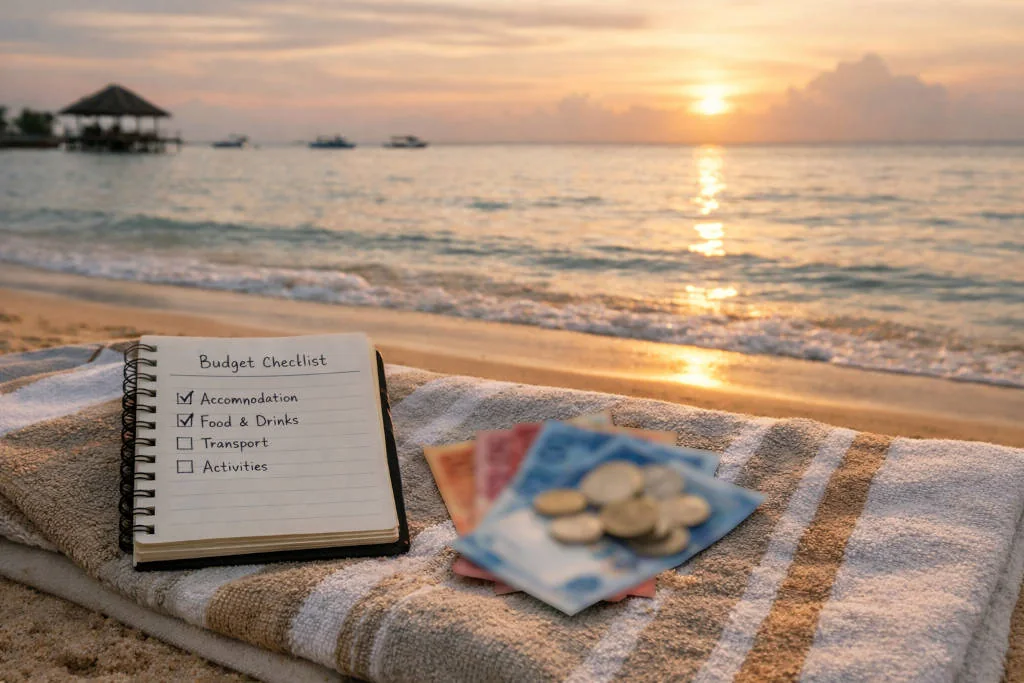 Budget Checklist
Accomnodation
Food & Drinks
Transport
Activities